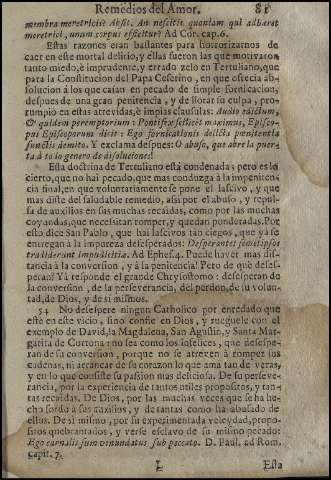 Remedios del Amor. 81
membra meretricis? Absit. An nescitis quoniam qui adhæret
meretrici, unum corpus efficitur? Ad Cor. cap.6.
Estas razones eran bastantes para horrorizarnos de
caer en este mortal delirio, y ellas fueron las que motivaron
tanto miedo, è imprudente, y errado zelo en Tertuliano, que
para la Constitucion del Papa Ceferino, en que ofrecia ab-
solucion à los que caían en pecado de simple fornicacion,
despues de una gran penitencia, y de llorar su culpa, pro-
rumpiò en estas atrevidas, è impias clausulas: Audio edictum,
& quidem peremptorium: Pontifex scilicet maximus, Episco-
pus Episcoporum dicit: Ego fornicationis delicta pœnitentia
functis demito. Y exclama despues: O abuso, que abre la puer-
ta à to lo genero de disoluciones!
Esta doctrina de Tertuliano està condenada; pero es lo
cierto, que no hai pecado, que mas conduzga à la impeniten-
cia final, en que voluntariamente se pone el lascivo, y que
mas diste del saludable remedio, assi por el abuso, y repul-
sa de auxilios en sus muchas recaidas, como por las muchas
coyundas, que necesitan romper, y quedan ponderadas. Por
esto dice San Pablo, que hai lascivos tan ciegos, que yà se
entregan à la impureza desesperados: Desperantes semetipsos
tradiderunt impudicitiæ. Ad Ephes.4. Puede haver mas dis-
tancia à la conversion, y à la penitencia? Pero de què deses-
peran? Yà responde el grande Chrysostomo: desesperan de
la conversion, de la perseverancia, del perdon, de su volun-
tad, de Dios, y de sì mismos.
54 No desespere ningun Catholico por enredado que
estè en este vicio, sino confie en Dios, y ruegule con el
exemplo de David, la Magdalena, San Agustin, y Santa Mar-
garita de Cortona: no sea como los infelices, que desespe-
ran de su conversion, porque no se atreven à romper los
cadenas, ni arrancar de su corazon lo que ama tan de veras,
y en lo que consiste su passion mas deliciosa. De su perseve-
rancia, por la experiencia de tantos utiles propositos, y tan-
tas recaidas. De Dios, por las muchas veces que se ha he-
cho sordo à sus auxilios, y de tantas como ha abusado de
ellos. De sì mismo, por su experimentada veleydad, propo-
sitos quebrantados, y verse esclavo de su mismo pecado:
Ego carnalis sum venundatus sub peccato. D. Paul. ad Rom.
capit. 7.
L Esta